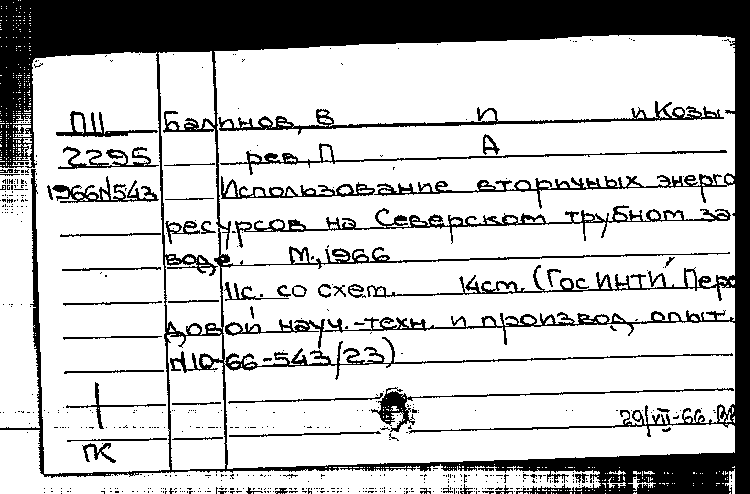 ПII Балинов, В И и Козы-
2295 рев, П А
1966N543 Использование вторичных энерго
ресурсов на Северском трубном за-
воде. М., 1966
11с. со схем. 14см. (ГосИНТИ. Пере
довой науч.-техн. и производ. опыт.
N10-66-543/23)
29/VII-66.
ПК